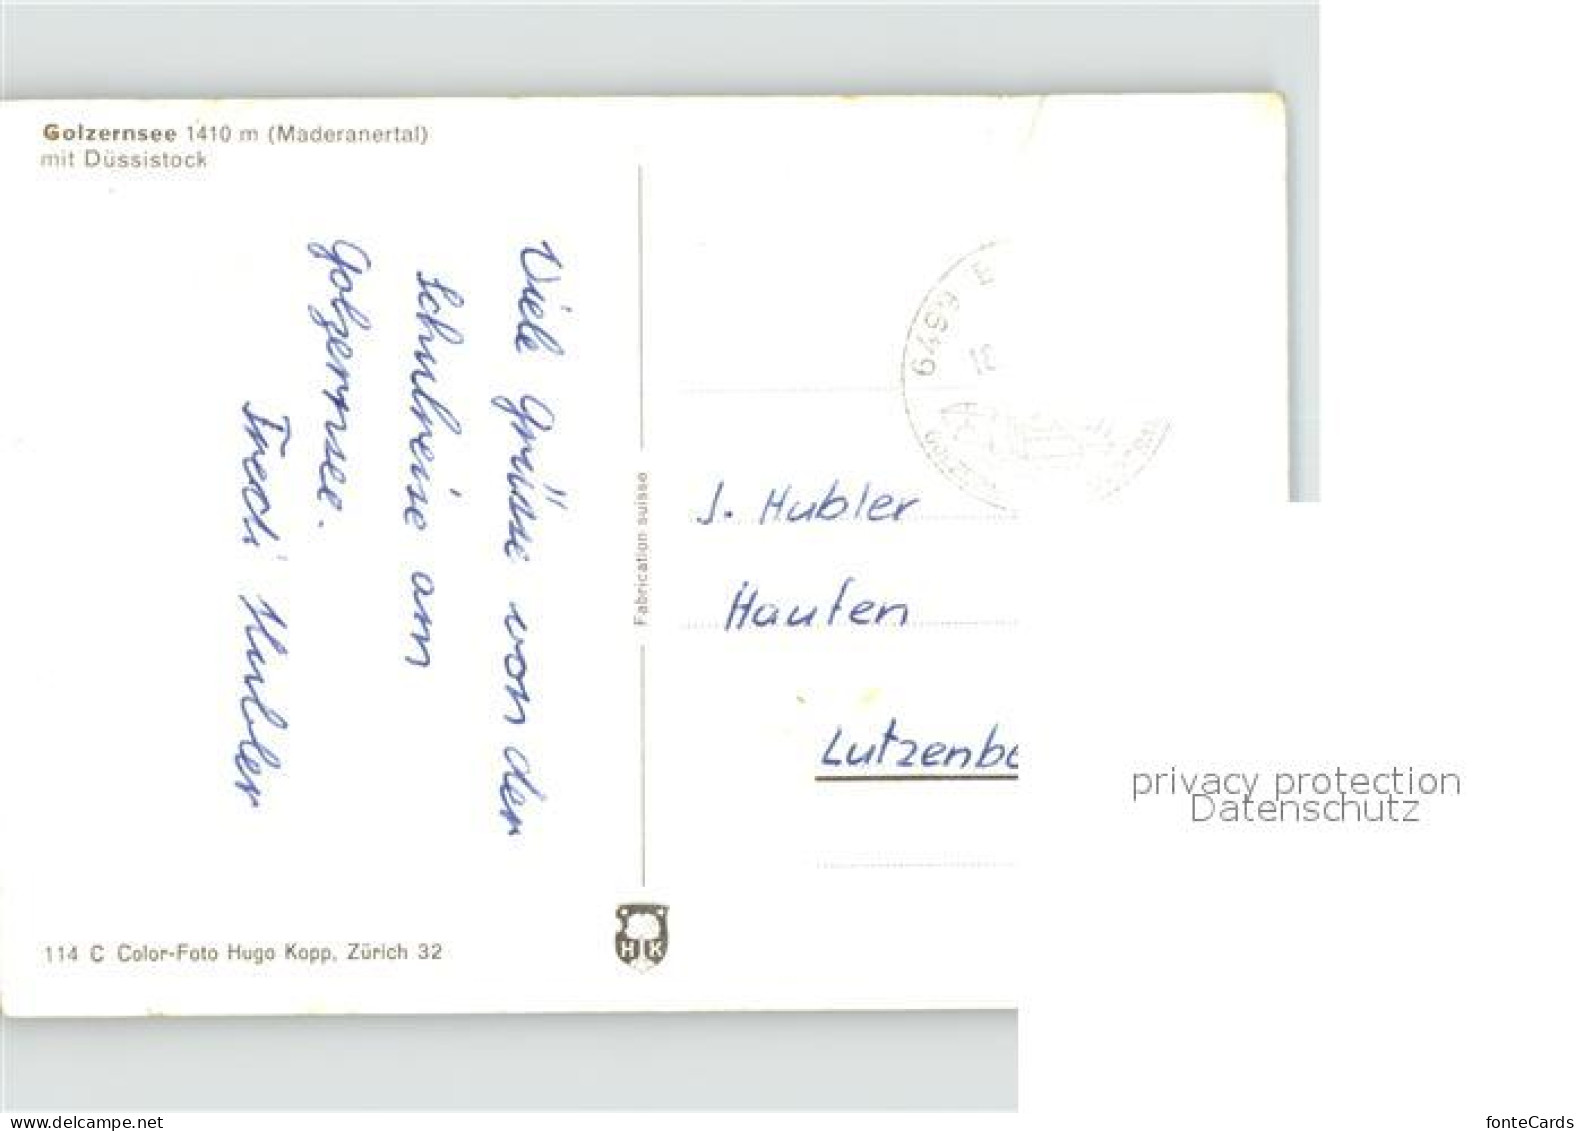 Golzernsee 1410 m (Maderanertal)
mit Düssistock
Viele Grüsse von der
Schulreise am
Golzernsee.
Fredi Hubler
Fabrication suisse
6679
J. Hubler
Haufen
Lutzenbe
114 C Color-Foto Hugo Kopp, Zürich 32
H K
privacy protection
Datenschutz
www.delcampe.net
fonteCards